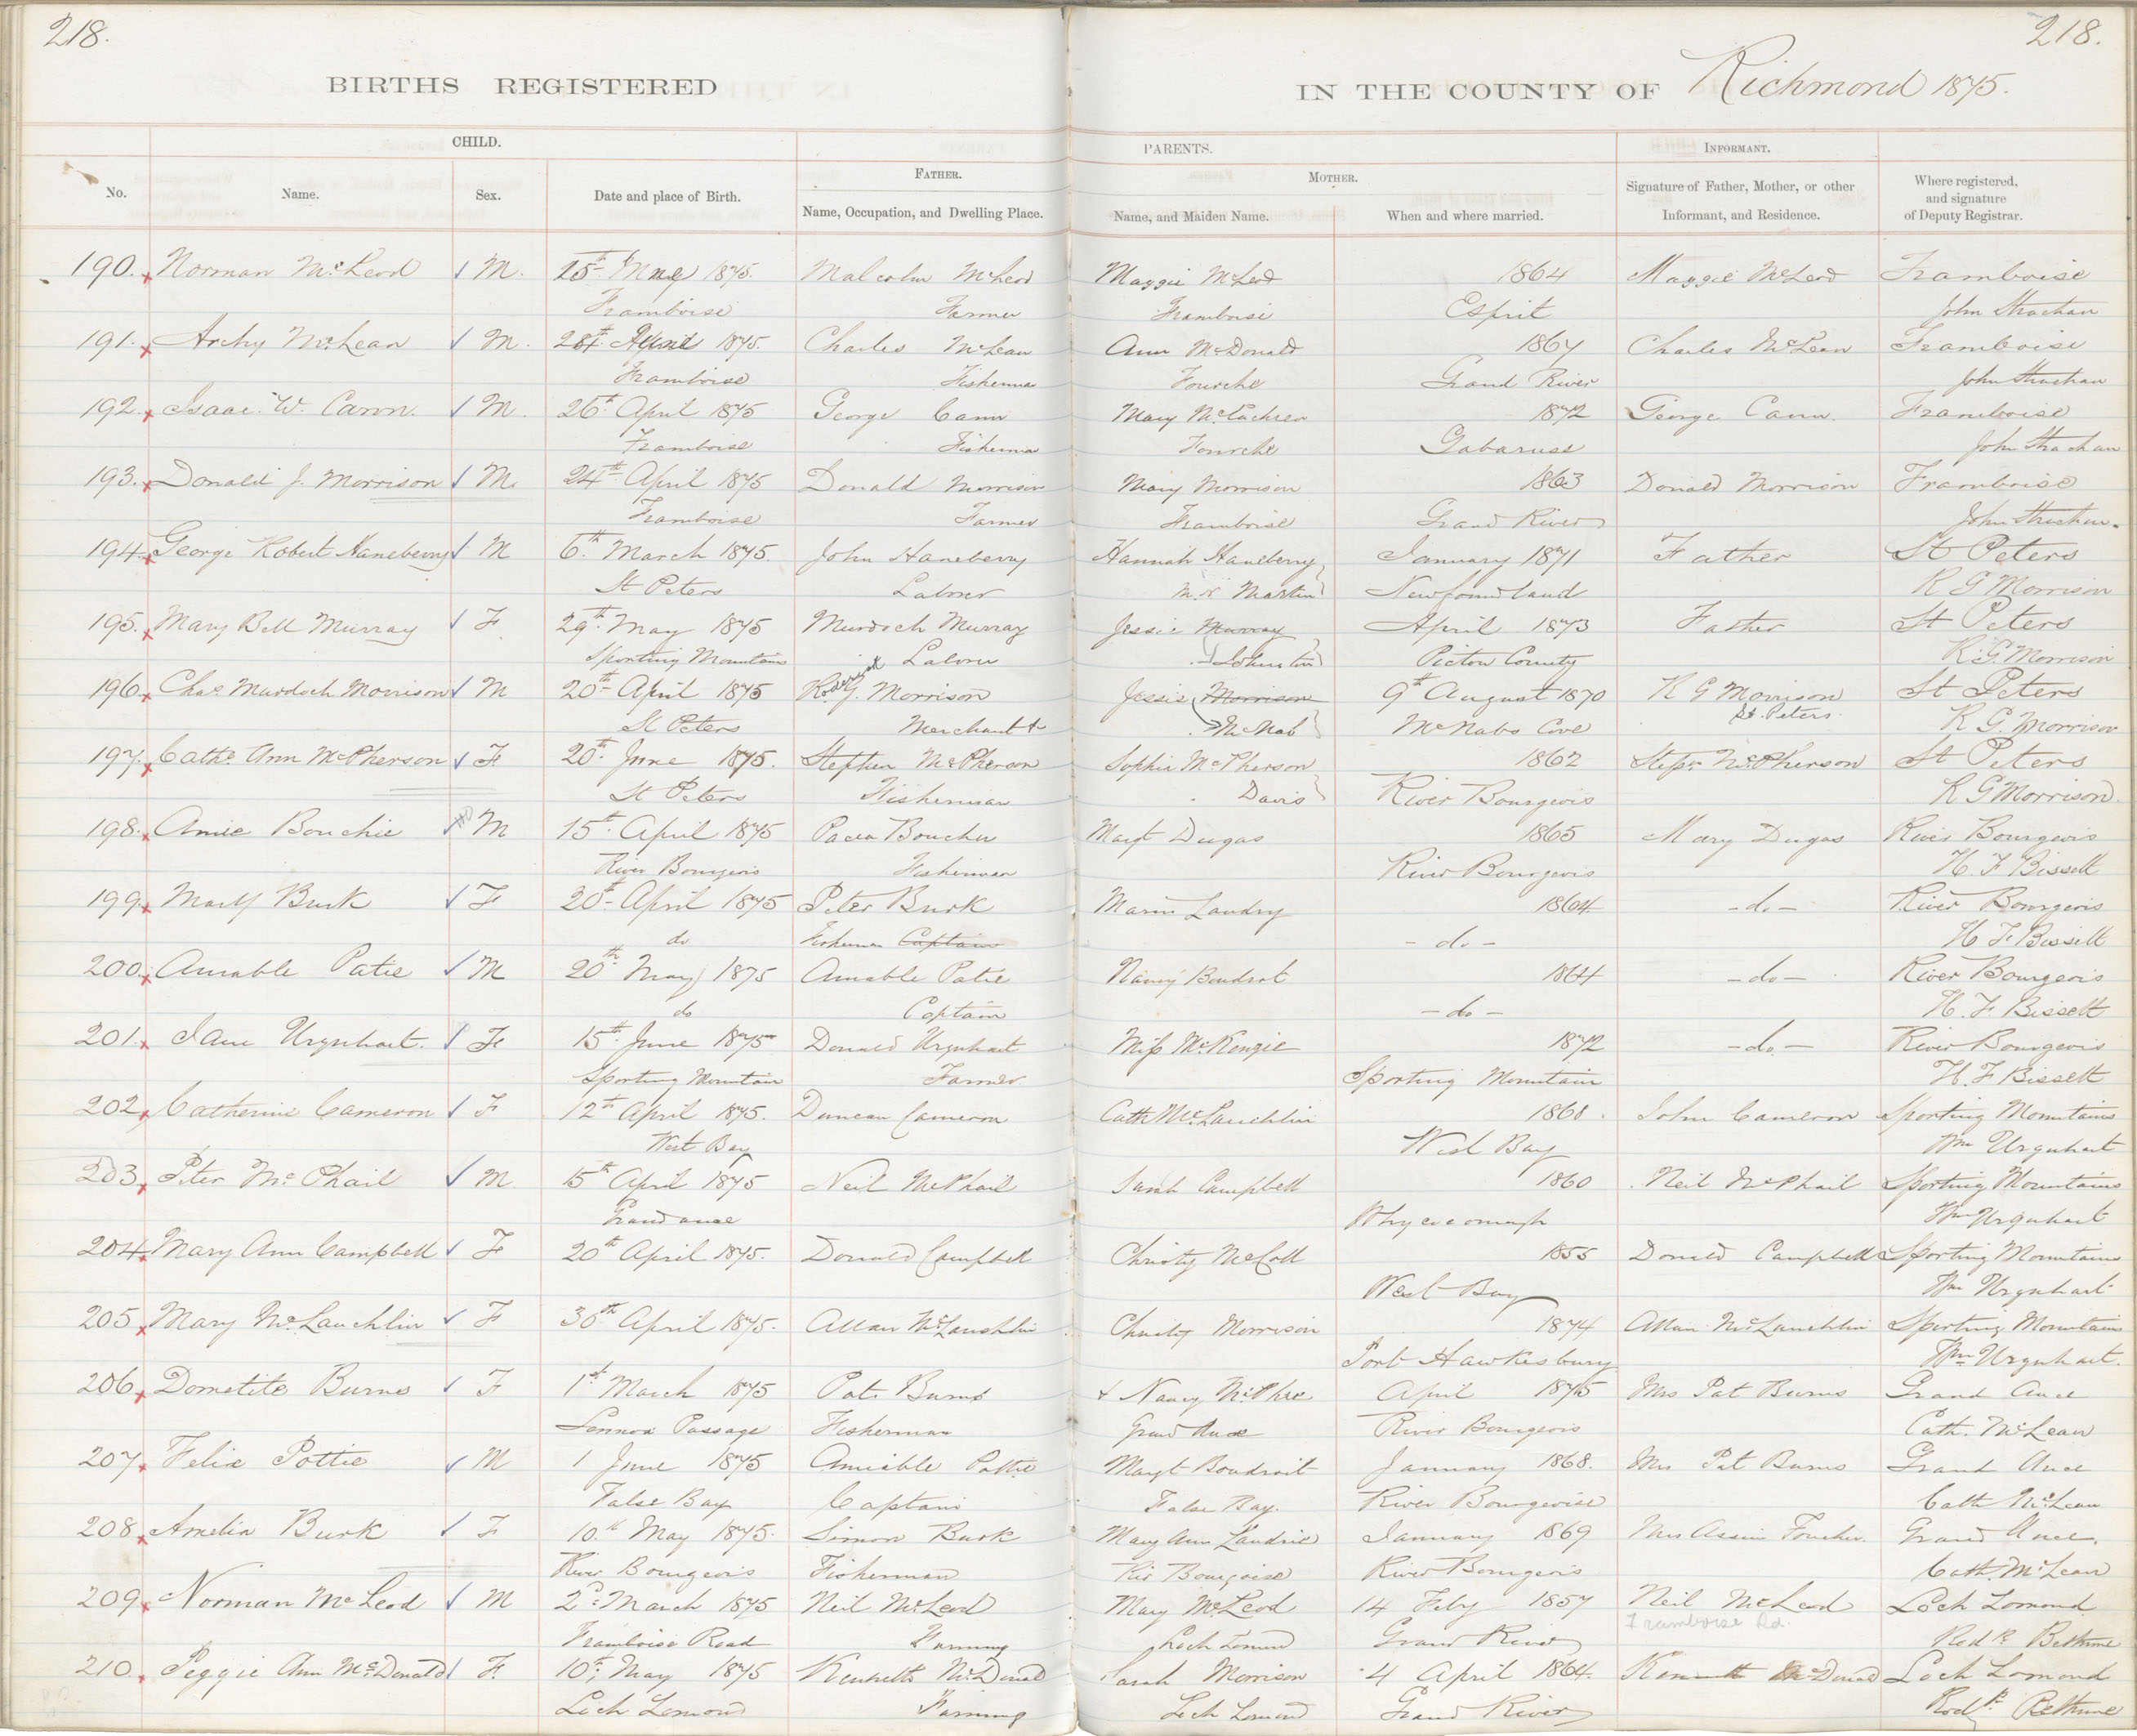 218.
218.
BIRTHS REGISTERED
IN THE COUNTY OF Richmond 1875.
CHILD.
PARENTS.
INFORMANT.
No.
Name.
Sex.
Date and place of Birth.
FATHER.
Name, Occupation, and Dwelling Place.
MOTHER.
Name, and Maiden Name.
When and where married.
Signature of Father, Mother, or other
Informant, and Residence.
Where registered,
and signature
of Deputy Registrar.
190. Norman McLeod M. 15th May 1875. Malcolm McLeod Maggie McLeod 1864 Maggie McLeod Framboise
Framboise Farmer Framboise Esprit John Strachan
191. Archy McLean M. 28th April 1875. Charles McLean Ann McDonald 1867 Charles McLean Framboise
Framboise Fisherman Fourche Grand River John Strachan
192. Isaac W. Cann. M. 26th April 1875 George Cann Mary McEachren 1872 George Cann. Framboise
Framboise Fisherman Fourche Gabaruse John Strachan
193. Donald J. Morrison M. 24th April 1875 Donald Morrison Mary Morrison 1863 Donald Morrison Framboise
Framboise Farmer Framboise Grand River John Strachan.
194. George Robert Haneberry M 6th March 1875. John Haneberry Hannah Haneberry January 1871 Father St Peters
St Peters Labour M.N. Martin Newfoundland R G Morrison
195. Mary Bell Murray F. 29th May 1875 Murdoch Murray Jessie Murray April 1873 Father St Peters
Sporting Mountain Labour Johnston Picton County R.G. Morrison
196. Chas Murdoch Morrison M 20th April 1875 Roderick G. Morrison Jessie Morrison 9th August 1870 R G Morrison St Peters
St Peters Merchant & McNab McNabs Cove St. Peters. R G. Morrison
197. Cathe Ann McPherson F 20th June 1875. Stephen McPherson Sophia McPherson 1862 Stepn McPherson St Peters
St Peters Fisherman Davis River Bourgeois R G Morrison
198. Amie Bouchie M 15th April 1875 Boucher Margt Dugas 1865 Mary Dugas River Bourgeois
River Bourgeois Fisherman River Bourgeois H. F Bissett
199. Burk F 20th April 1875 Peter Burk Landry 1864 -do- River Bourgeois
do Fisherman Captain -do- H F Bissett
200. Amable Patie M 20th May 1875 Amable Patie Nancy Boudrot 1864 -do- River Bourgeois
do Captain -do- H. F. Bissett
201. Jane Urquhart. F 15th June 1875 Donald Urquhart Miss McKenzie 1872 -do- River Bourgeois
Sporting Mountain Farmer Sporting Mountain H. F Bissett
202. Catherine Cameron F 12th April 1875. Duncan Cameron Cath McLauchlin 1868. John Cameron Sporting Mountains
West Bay West Bay Wm Urquhart
203. Peter McPhail M 15th April 1875 Neil McPhail Sarah Campbell 1860 Neil McPhail Sporting Mountains
Grand ance Whycocomagh Wm Urquhart
204. Mary Ann Campbell F 20th April 1875. Donald Campbell Christy McColl 1855 Donald Campbell Sporting Mountains
West Bay Wm Urquhart
205. Mary McLauchlin F 30th April 1875. Allan McLauchlin Christy Morrison 1874 Allan McLauchlin Sporting Mountains
Port Hawkesbury Wm Urquhart.
206. Dometite Burns F 1st March 1875 Pat. Burns & Nancy McPhee April 1875 Mrs Pat Burns Grand Ance
Lennox Passage Fisherman Grand Ance River Bourgeois Cath. McLean
207. Felix Pottie M 1 June 1875 Amiable Pottie Margt Boudroit January 1868. Mrs Pat Burns Grand Ance
False Bay Captain False Bay. River Bourgeoise Cath McLean
208. Amelia Burk F 10th May 1875. Simon Burk Mary Ann Landrie January 1869 Mrs Foucher. Grand Ance.
River Bourgeois Fisherman Riv Bourgoise River Bourgeois Cath. McLean
209. Norman McLeod M 2d March 1875 Neil McLeod Mary McLeod 14 Feby 1857 Neil McLeod Loch Lomond
Framboise Road Farming Loch Lomond Grand River Framboise Rd. Rodk Bethune
210. Peggie Ann McDonald F. 10th May 1875 Kenneth McDonald Sarah Morrison 4 April 1864. Kenneth McDonald Loch Lomond
Loch Lomond Farming Loch Lomond Grand River Rodk Bethune